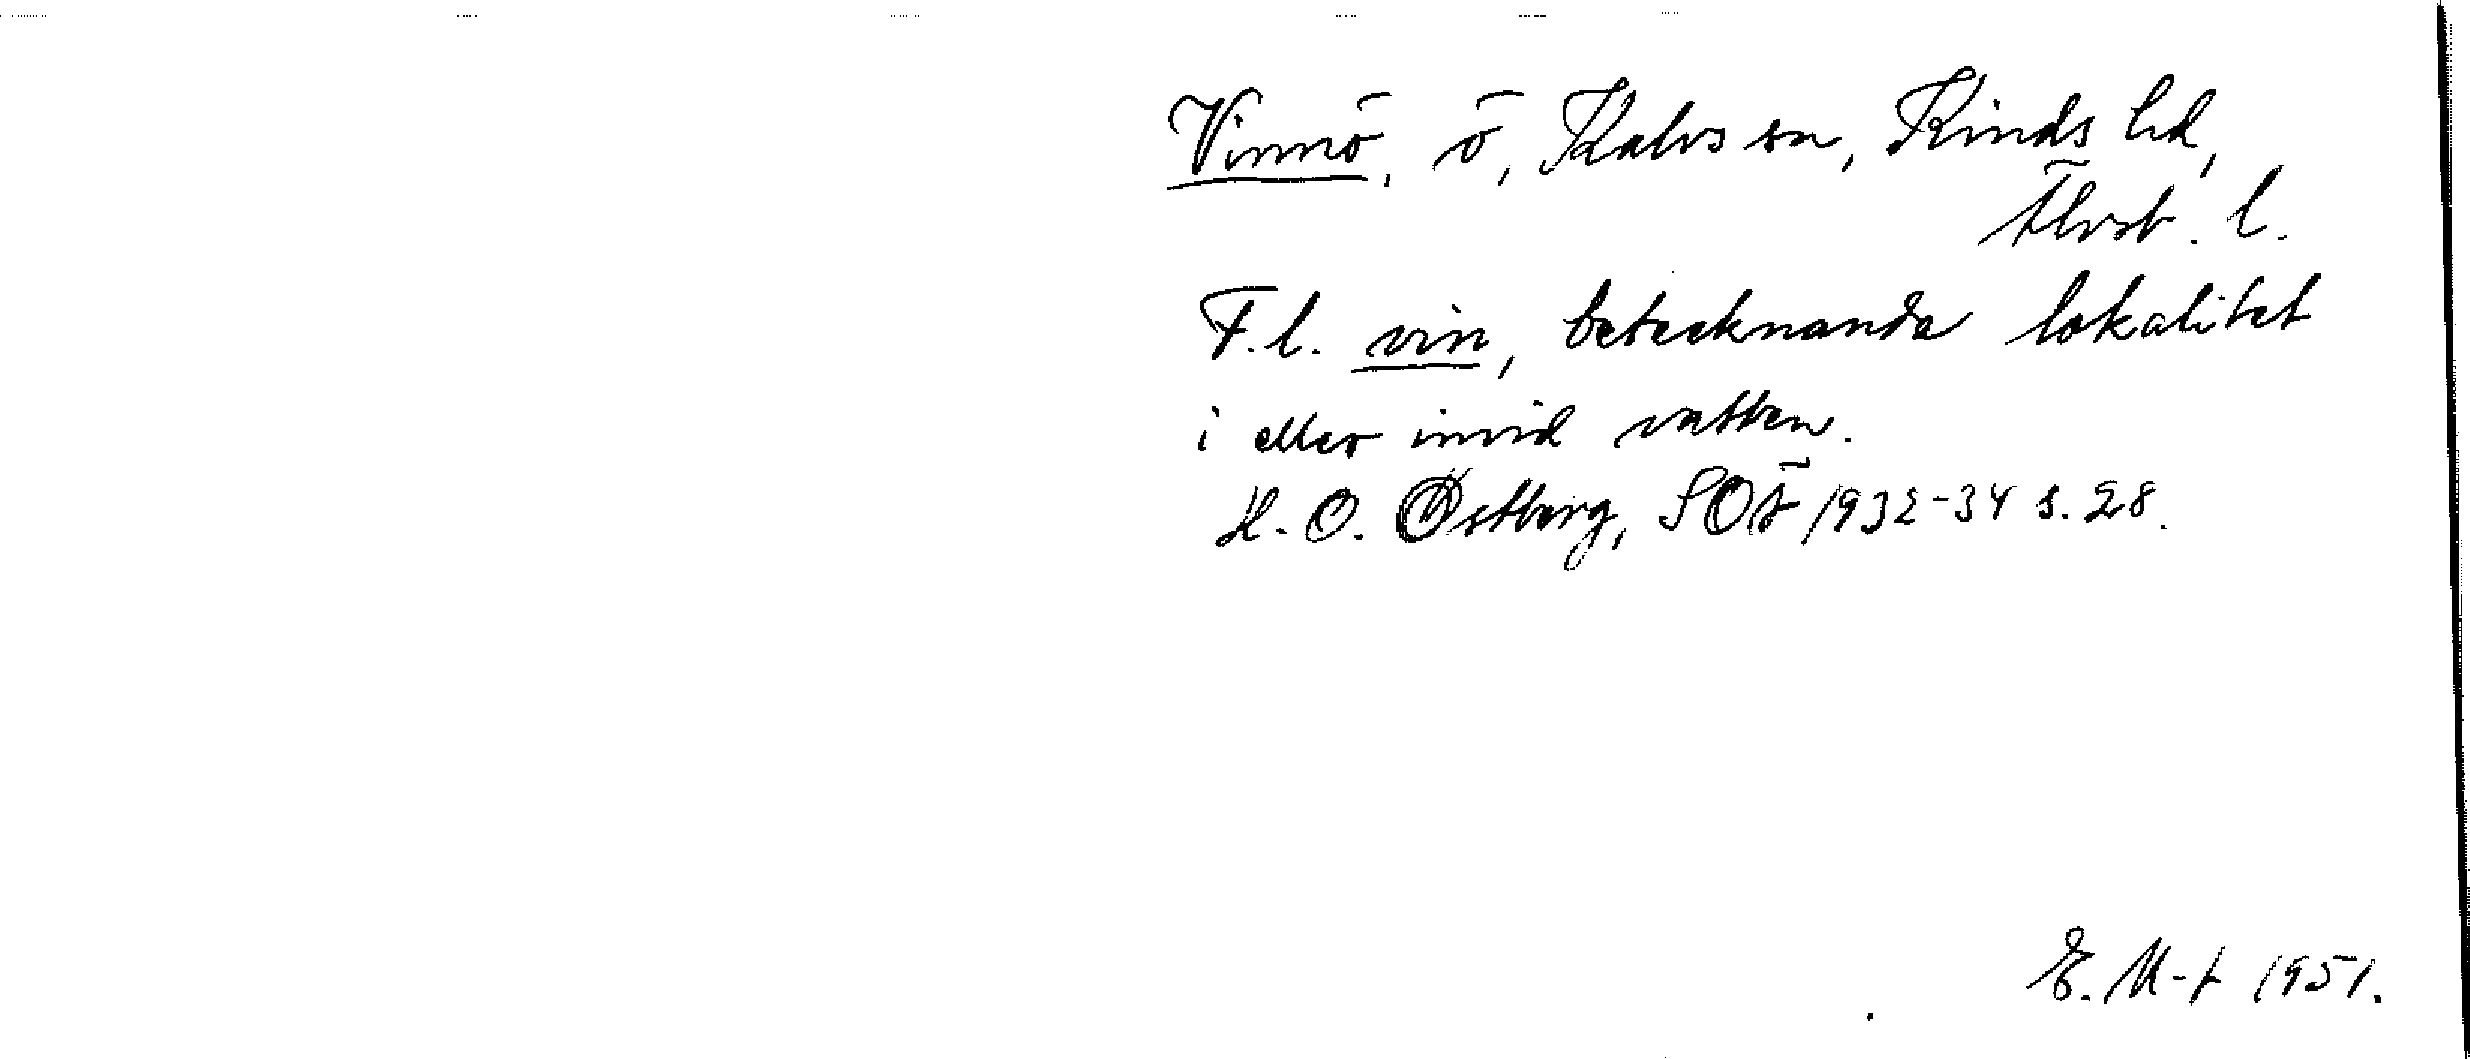 Vinnö, ö, Kalvs sn, Kinds hd,
Älvsb. l.
F.l. vin, betecknande lokalitet
i eller invid vatten.
H. O. Östberg, SOÅ 1932-34 s. 28.
E. M-t 1951.